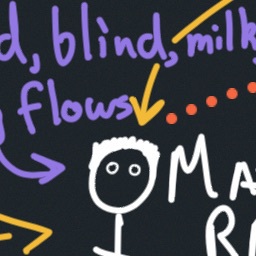 d, blind, milk
flows
MA
RA